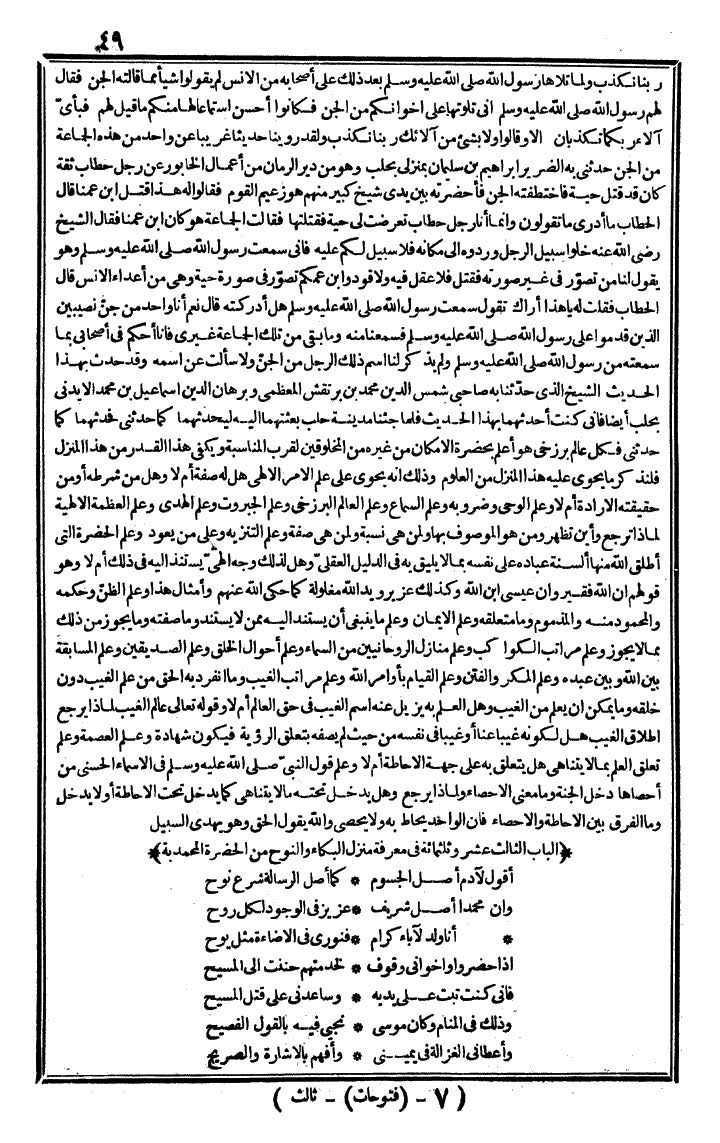 ٤٩
ربنا نكذب ولما تلاها رسول الله صلى الله عليه وسلم بعد ذلك على أصحابه من الانس لم يقولوا شيأ مما قالته الجن فقال
لهم رسول الله صلى الله عليه وسلم انى تلوتها على اخوانكم من الجن فكانوا أحسن استماعا لها منكم ما قيل لهم فبأى
آلاء ربكما تكذبان الا وقالوا ولا بشئ من آلائك ربنا نكذب ولقد روينا حديثا غريبا عن واحد من هذه الجماعة
من الجن حدثنى به الضرير ابراهيم بن سليمان بمنزلى بحلب وهو من دير الرمان من أعمال الخابور عن رجل حطاب ثقة
كان قد قتل حية فاختطفته الجن فأحضرته بين يدى شيخ كبير منهم هو زعيم القوم فقالوا له هذا قتل ابن عمنا قال
الحطاب ما أدرى ما تقولون وانما أنا رجل حطاب تعرضت لى حية فقتلتها فقالت الجماعة هو كان ابن عمنا فقال الشيخ
رضى الله عنه خلوا سبيل الرجل وردوه الى مكانه فلا سبيل لكم عليه فانى سمعت رسول الله صلى الله عليه وسلم وهو
يقول لنا من تصوّر فى غير صورته فقتل فلا عقل فيه ولا قود وابن عمكم تصوّر فى صورة حية وهى من أعداء الانس قال
الحطاب فقلت له يا هذا أراك تقول سمعت رسول الله صلى الله عليه وسلم هل أدركته قال نعم أنا واحد من جنّ نصيبين
الذين قدموا على رسول الله صلى الله عليه وسلم فسمعنا منه وما بقى من تلك الجماعة غيرى فأنا أحكم فى أصحابى بما
سمعته من رسول الله صلى الله عليه وسلم ولم يذكر لنا اسم ذلك الرجل من الجنّ ولا سألت عن اسمه وقد حدث بهذا
الحديث الشيخ الذى حدثنا به صاحبى شمس الدين محمد بن برتقش المعظمى وبرهان الدين اسماعيل بن محمد الايدنى
بحلب أيضا فانى كنت أحدثهما بهذا الحديث فلما جئنا مدينة حلب بعثتهما اليه ليحدثهما كما حدثنى فحدثهما كما
حدثنى فكل عالم برزخى هو أعلم بحضرة الامكان من غيره من المخلوقين لقرب المناسبة ويكفى هذا القدر من هذا المنزل
فلنذكر ما يحوى عليه هذا المنزل من العلوم وذلك انه يحوى على علم الامر الالهى هل له صفة أم لا وهل من شرطه أو من
حقيقته الارادة أم لا وعلم الوحى وضروبه وعلم السماع وعلم العالم البرزخى وعلم الجبروت وعلم الهدى وعلم العظمة الالهية
لماذا ترجع وأين تظهر ومن هو الموصوف بها ولمن هى نسبة ولمن هى صفة وعلم التنزيه وعلى من يعود وعلم الحضرة التى
أطلق الله منها ألسنة عباده على نفسه بما لا يليق به فى الدليل العقلىّ وهل لذلك وجه الهىّ يستند اليه فى ذلك أم لا وهو
قولهم ان الله فقير وان عيسى ابن الله وكذلك عزير ويد الله مغلولة كما حكى الله عنهم وأمثال هذا وعلم الظنّ وحكمه
والمحمود منه والمذموم وما متعلقه وعلم الايمان وعلم ما ينبغى أن يستند اليه ممن لا يستند وما صفته وما يجوز من ذلك
بما لا يجوز وعلم مراتب الكواكب وعلم منازل الروحانيين من السماء وعلم أحوال الخلق وعلم الصديقين وعلم المسابقة
بين الله وبين عبده وعلم المكر والفتن وعلم القيام بأوامر الله وعلم مراتب الغيب وما انفرد به الحق من علم الغيب دون
خلقه وما يمكن ان يعلم من الغيب وهل العلم به يزيل عنه اسم الغيب فى حق العالم أم لا وقوله تعالى عالم الغيب لماذا يرجع
اطلاق الغيب هل لكونه غيبا عنا أو غيبا فى نفسه من حيث لم يصفه بتعلق الرؤية فيكون شهادة وعلم العصمة وعلم
تعلق العلم بما لا يتناهى هل يتعلق به على جهة الاحاطة أم لا وعلم قول النبىّ صلى الله عليه وسلم فى الاسماء الحسنى من
أحصاها دخل الجنة وما معنى الاحصاء ولماذا يرجع وهل يدخل تحته ما لا يتناهى كما يدخل تحت الاحاطة أو لا يدخل
وما الفرق بين الاحاطة والاحصاء فان الواحد يحاط به ولا يحصى والله يقول الحق وهو يهدى السبيل
﴿الباب الثالث عشر وثلثمائة فى معرفة منزل البكاء والنوح من الحضرة المحمدية﴾
أقول لآدم أصل الجسوم * كما أصل الرسالة شرع نوح
وان محمدا أصل شريف * عزيز فى الوجود لكل روح
* أنا ولد لآباء كرام * فنورى فى الاضاءة مثل يوح
اذا حضروا واخوانى وقوف * لخدمتهم حننت الى المسيح
فانى كنت تبت على يديه * وساعدنى على قتل المسيح
وذلك فى المنام وكان موسى * نجيى فيه بالقول الفصيح
وأعطانى الغزالة فى يمينى * وأفهم بالاشارة والصريح
( ٧ - (فتوحات) - ثالث )